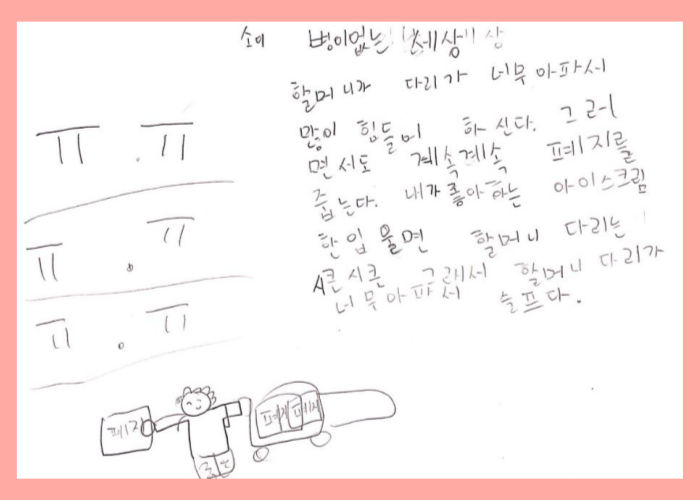 소이 병이없는 세상
할머니가 다리가 너무 아파서
많이 힘들어 하신다. 그러
면서도 계속계속 폐지를
줍는다. 내가좋아하는 아이스크림
한입 물면 할머니 다리는
시큰시큰 그래서 할머니 다리가
너무아파서 슬프다.
ㅠ.ㅠ
ㅠ.ㅠ
ㅠ.ㅠ
폐지 폐지 폐지